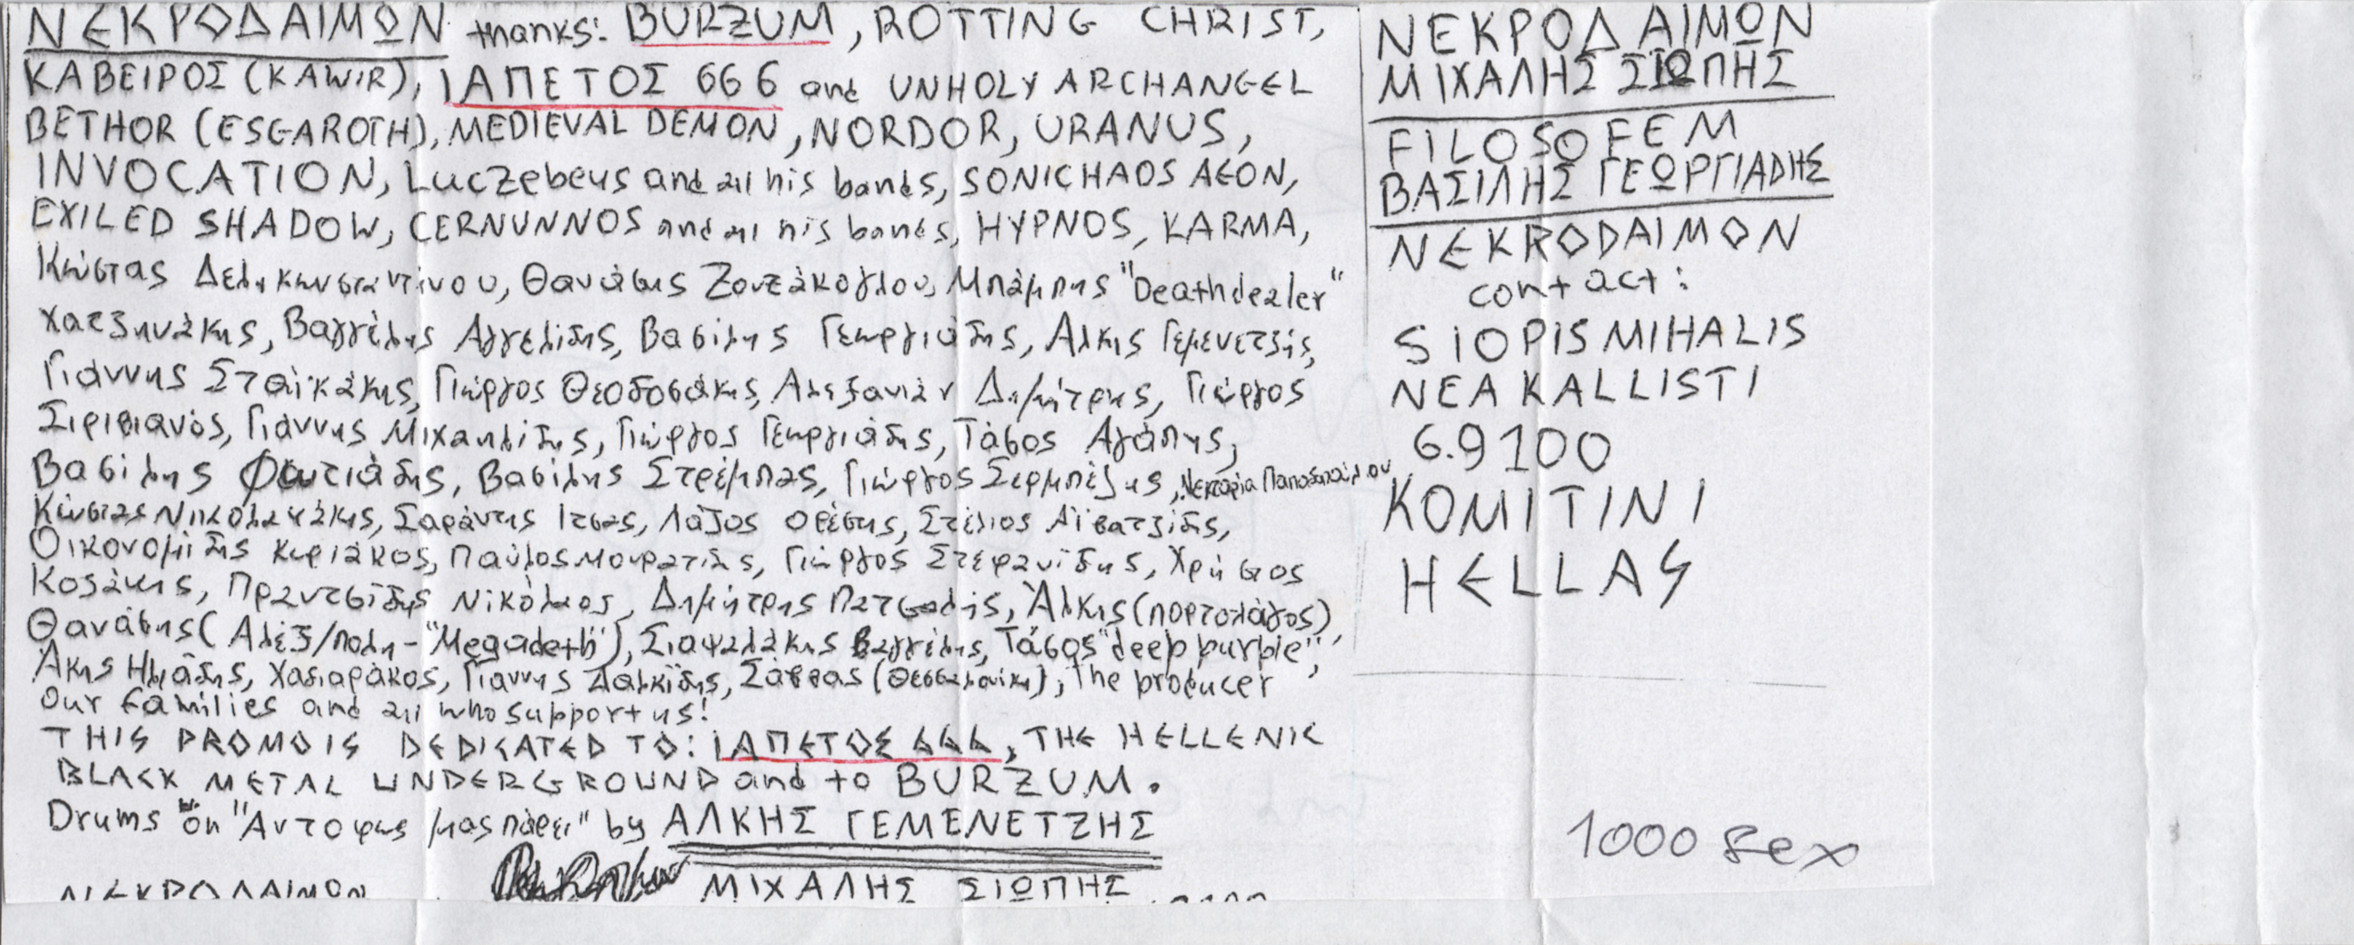 ΝΕΚΡΟΔΑΙΜΩΝ thanks: BURZUM, ROTTING CHRIST,
ΚΑΒΕΙΡΟΣ (KAWIR), ΙΑΠΕΤΟΣ 666 and UNHOLY ARCHANGEL
BETHOR (ESGAROTH), MEDIEVAL DEMON, NORDOR, URANUS,
INVOCATION, Luczebeus and all his bands, SONICHAOS AEON,
EXILED SHADOW, CERNUNNOS and all his bands, HYPNOS, KARMA,
Κώστας Δεληκωνσταντίνου, Θανάσης Ζουτζάκογλου, Μπάμπης "Deathdealer"
Χατζηνάκης, Βαγγέλης Αγγελίδης, Βασίλης Γεωργιάδης, Αλκις Γεμενετζής,
Γιάννης Σταϊκάκης, Γιώργος Θεοδοσάκης, Αλεξανιάν Δημήτρης, Γιώργος
Σιριβιανός, Γιάννης Μιχαηλίδης, Γιώργος Γεωργιάδης, Τάσος Αγάπης,
Βασίλης Φωτιάδης, Βασίλης Στρέμπας, Γιώργος Σερμπέζης, Νεκταρία Παπαδοπούλου
Κώστας Νικολαψάκης, Σαράντης Ιτσας, Λάζος Ορέστης, Στέλιος Αϊβατζίδης,
Οικονομίδης Κυριάκος, Παύλος Μουρατίδης, Γιώργος Στεφανίδης, Χρήστος
Κοζάκης, Πραντσίδης Νικόλαος, Δημήτρης Πατσαλής, Άλκις (πορτολάγος),
Θανάσης (Αλέξ/πολη - "Megadeth"), Σιαψαλάκης Βαγγέλης, Τάσος "deep purple",
Άκης Ηλιάδης, Χασιαράκος, Γιάννης Δαλκίδης, Σάββας (Θεσσαλονίκη), The producer,
our families and all who support us!
THIS PROMO IS DEDICATED TO: ΙΑΠΕΤΟΣ 666, THE HELLENIC
BLACK METAL UNDERGROUND and to BURZUM.
Drums on "Αντοψως μας πάρει" by ΑΛΚΗΣ ΓΕΜΕΝΕΤΖΗΣ
ΝΕΚΡΟΔΑΙΜΩΝ ΜΙΧΑΛΗΣ ΣΙΩΠΗΣ
ΝΕΚΡΟΔΑΙΜΩΝ
ΜΙΧΑΛΗΣ ΣΙΩΠΗΣ
FILOSOFEM
ΒΑΣΙΛΗΣ ΓΕΩΡΓΙΑΔΗΣ
NEKRODAIMON
contact:
SIOPIS MIHALIS
NEA KALLISTI
69100
KOMITINI
HELLAS
1000 δεχ